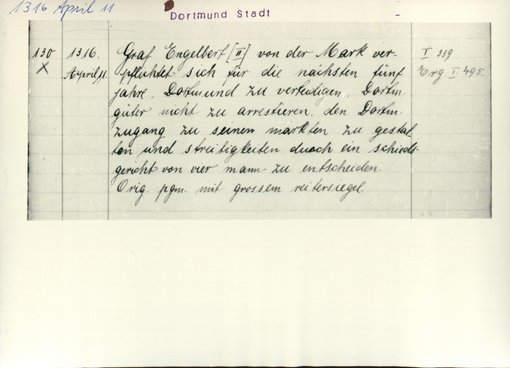 1316 April 11
Dortmund Stadt
130 1316. Graf Engelbert [II] von der Mark ver- I 339
X April 11. pflichtet sich für die nächsten fünf Erg I. 495.
jahre, Dortmund zu verteidigen, Dortm.
güter nicht zu arrestieren, den Dortm.
zugang zu seinen märkten zu gestat
ten und streitigkeiten duach ein schieds
gericht von vier mann zu entscheiden.
Orig. pgm. mit grossem reitersiegel.